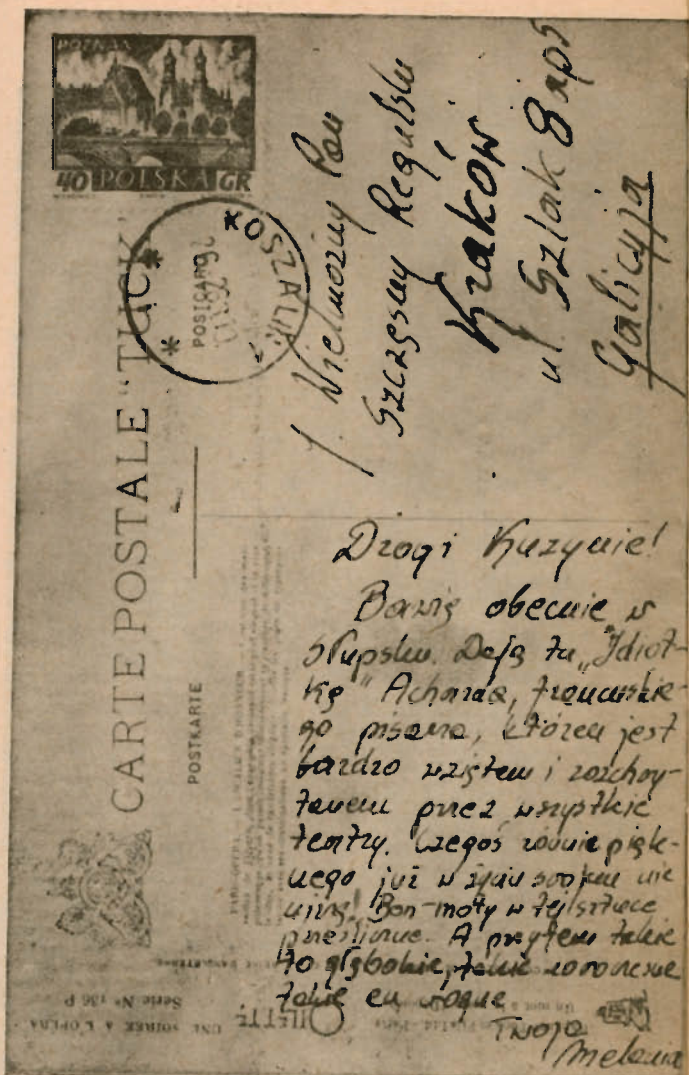 POZNAŃ
40 POLSKA GR
KOSZALIN
POSTCARD
CARTE POSTALE "TUCK"
POSTKARTE
J. Wielmożny Pan
Szczęsny Regulski
Kraków
ul. Szlak 8 ap5
Galicyja
Drogi Kuzynie!
Bawię obecnie w
Słupsku. Dają tu „Idiot-
kę" Acharda, francuskie-
go pisarza, który jest
bardzo wziętem i rozchwy-
tanem przez wszystkie
teatry. Czegoś równie pięk-
nego już w życiu swojem nie
Bon-moty w tej sztuce
prześliczne. A przytem takie
to głębokie, takie
takie en vogue
Twoja
Melania
UNE SOIREE A L'OPERA
Serie No 136 P